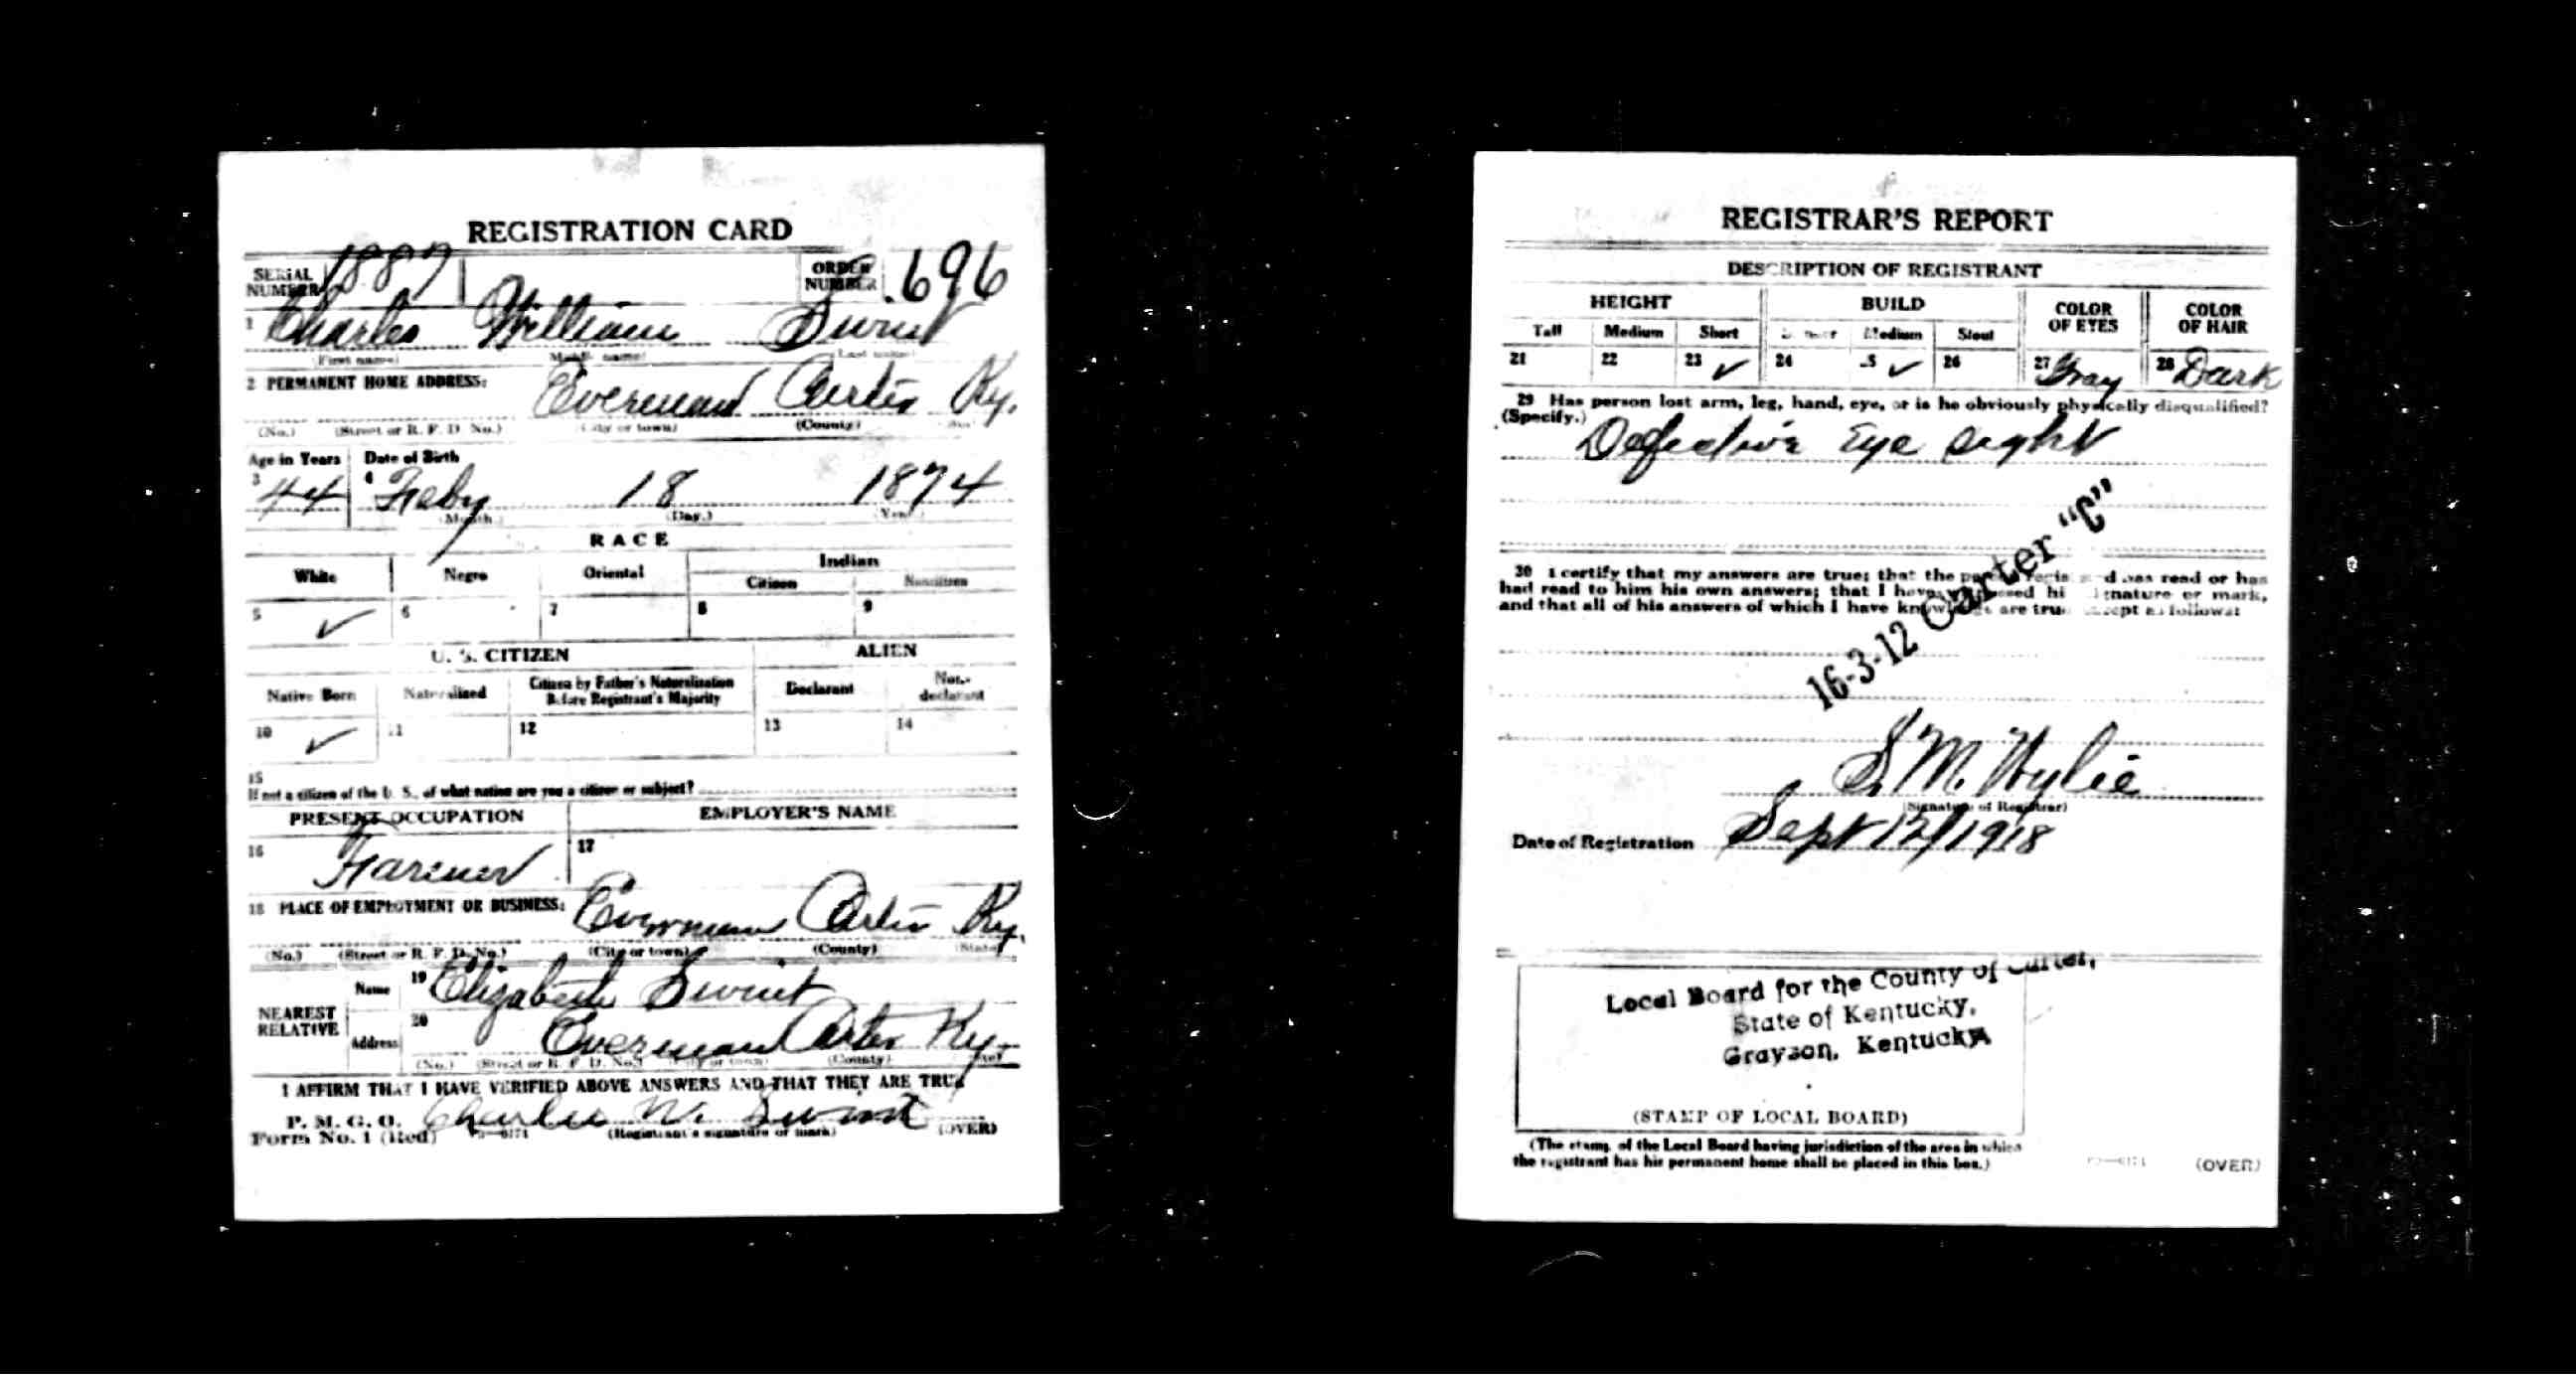 REGISTRATION CARD
SERIAL NUMBER 1887 ORDER NUMBER 696
1 Charles William Swint
(First name) (Middle name) (Last name)
2 PERMANENT HOME ADDRESS:
Everman Carter Ky.
(No.) (Street or R. F. D. No.) (City or town) (County)
Age in Years Date of Birth
3 44 4 Feby 18 1874
(Month) (Day.) (Year)
RACE
White Negro Oriental Indian
Citizen Noncitizen
5 ✓ 6 7 8 9
U. S. CITIZEN ALIEN
Native Born Naturalized Citizen by Father's Naturalization Before Registrant's Majority Declarant Non-declarant
10 ✓ 11 12 13 14
15
If not a citizen of the U. S., of what nation are you a citizen or subject?
PRESENT OCCUPATION EMPLOYER'S NAME
16 Farmer 17
18 PLACE OF EMPLOYMENT OR BUSINESS:
Everman Carter Ky.
(No.) (Street or R. F. D. No.) (City or town) (County) (State)
NEAREST RELATIVE
Name 19 Elizabeth Swint
Address 20 Everman Carter Ky.
(No.) (Street or R. F. D. No.) (City or town) (County) (State)
I AFFIRM THAT I HAVE VERIFIED ABOVE ANSWERS AND THAT THEY ARE TRUE
P. M. G. O.
Form No. 1 (Red) Charlie W. Swint
(Registrant's signature or mark) (OVER)
REGISTRAR'S REPORT
DESCRIPTION OF REGISTRANT
HEIGHT BUILD COLOR OF EYES COLOR OF HAIR
Tall Medium Short Slender Medium Stout
21 22 23 ✓ 24 25 ✓ 26 27 Gray 28 Dark
29 Has person lost arm, leg, hand, eye, or is he obviously physically disqualified?
(Specify.)
Defective Eye sight
30 I certify that my answers are true; that the person registered has read or has
had read to him his own answers; that I have witnessed his signature or mark,
and that all of his answers of which I have knowledge are true, except as follows:
16-3-12 Carter "C"
S. M. Wylie
(Signature of Registrar)
Date of Registration Sept 12/1918
Local Board for the County of Carter,
State of Kentucky,
Grayson, Kentucky
(STAMP OF LOCAL BOARD)
(The stamp of the Local Board having jurisdiction of the area in which
the registrant has his permanent home shall be placed in this box.)
(OVER)